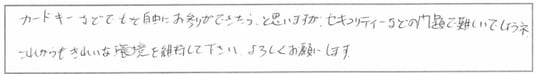 カードキーなどでもっと自由にお参りができたら、と思いますが、セキュリティーなどの問題で難しいでしょうネ
これからもきれいな環境を維持して下さい。よろしくお願いします